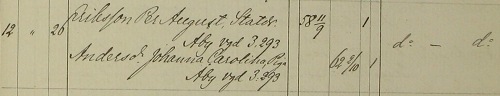 12 " 26 Eriksson Per August, Stata. 58 11/9 1
Åby vyd 3.293 d:o — d:o
Andersdr Johanna Carolina, Pig. 62 2/10 1
Åby vyd 3.293